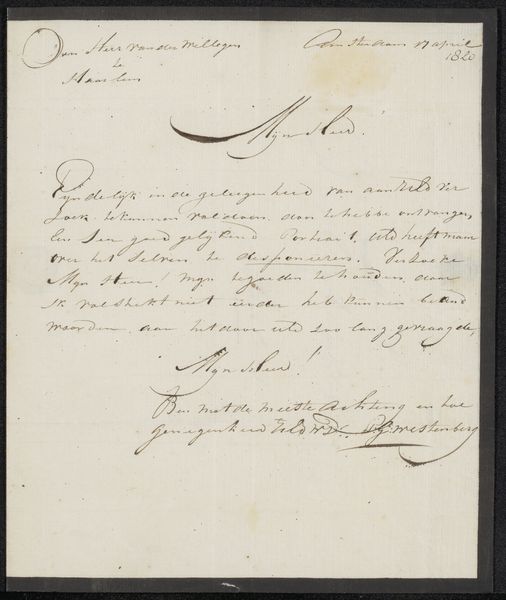 Den Heer van der Willegen
te
Haarlem
Amsterdam 17 april
1820
Mijn Heer!
Eyndelijk in de gelegenheid van aan UEd ver
zoek te kunnen voldoen, door te hebbe ontvangen
Een Zeer goed gelijkend Portrait, UEd heeft maar
over het Selven te desponieren. Verzoeke
Mijn Heer! mijn te houden, daar
Ik volstrekt niet eerder heb kunnen beand
woorden, aan het door UEd zoo lang gevraagde,
Mijn Heer!
Ben met de meeste Achting en hoe
genegenheid UEd WD. Westenberg